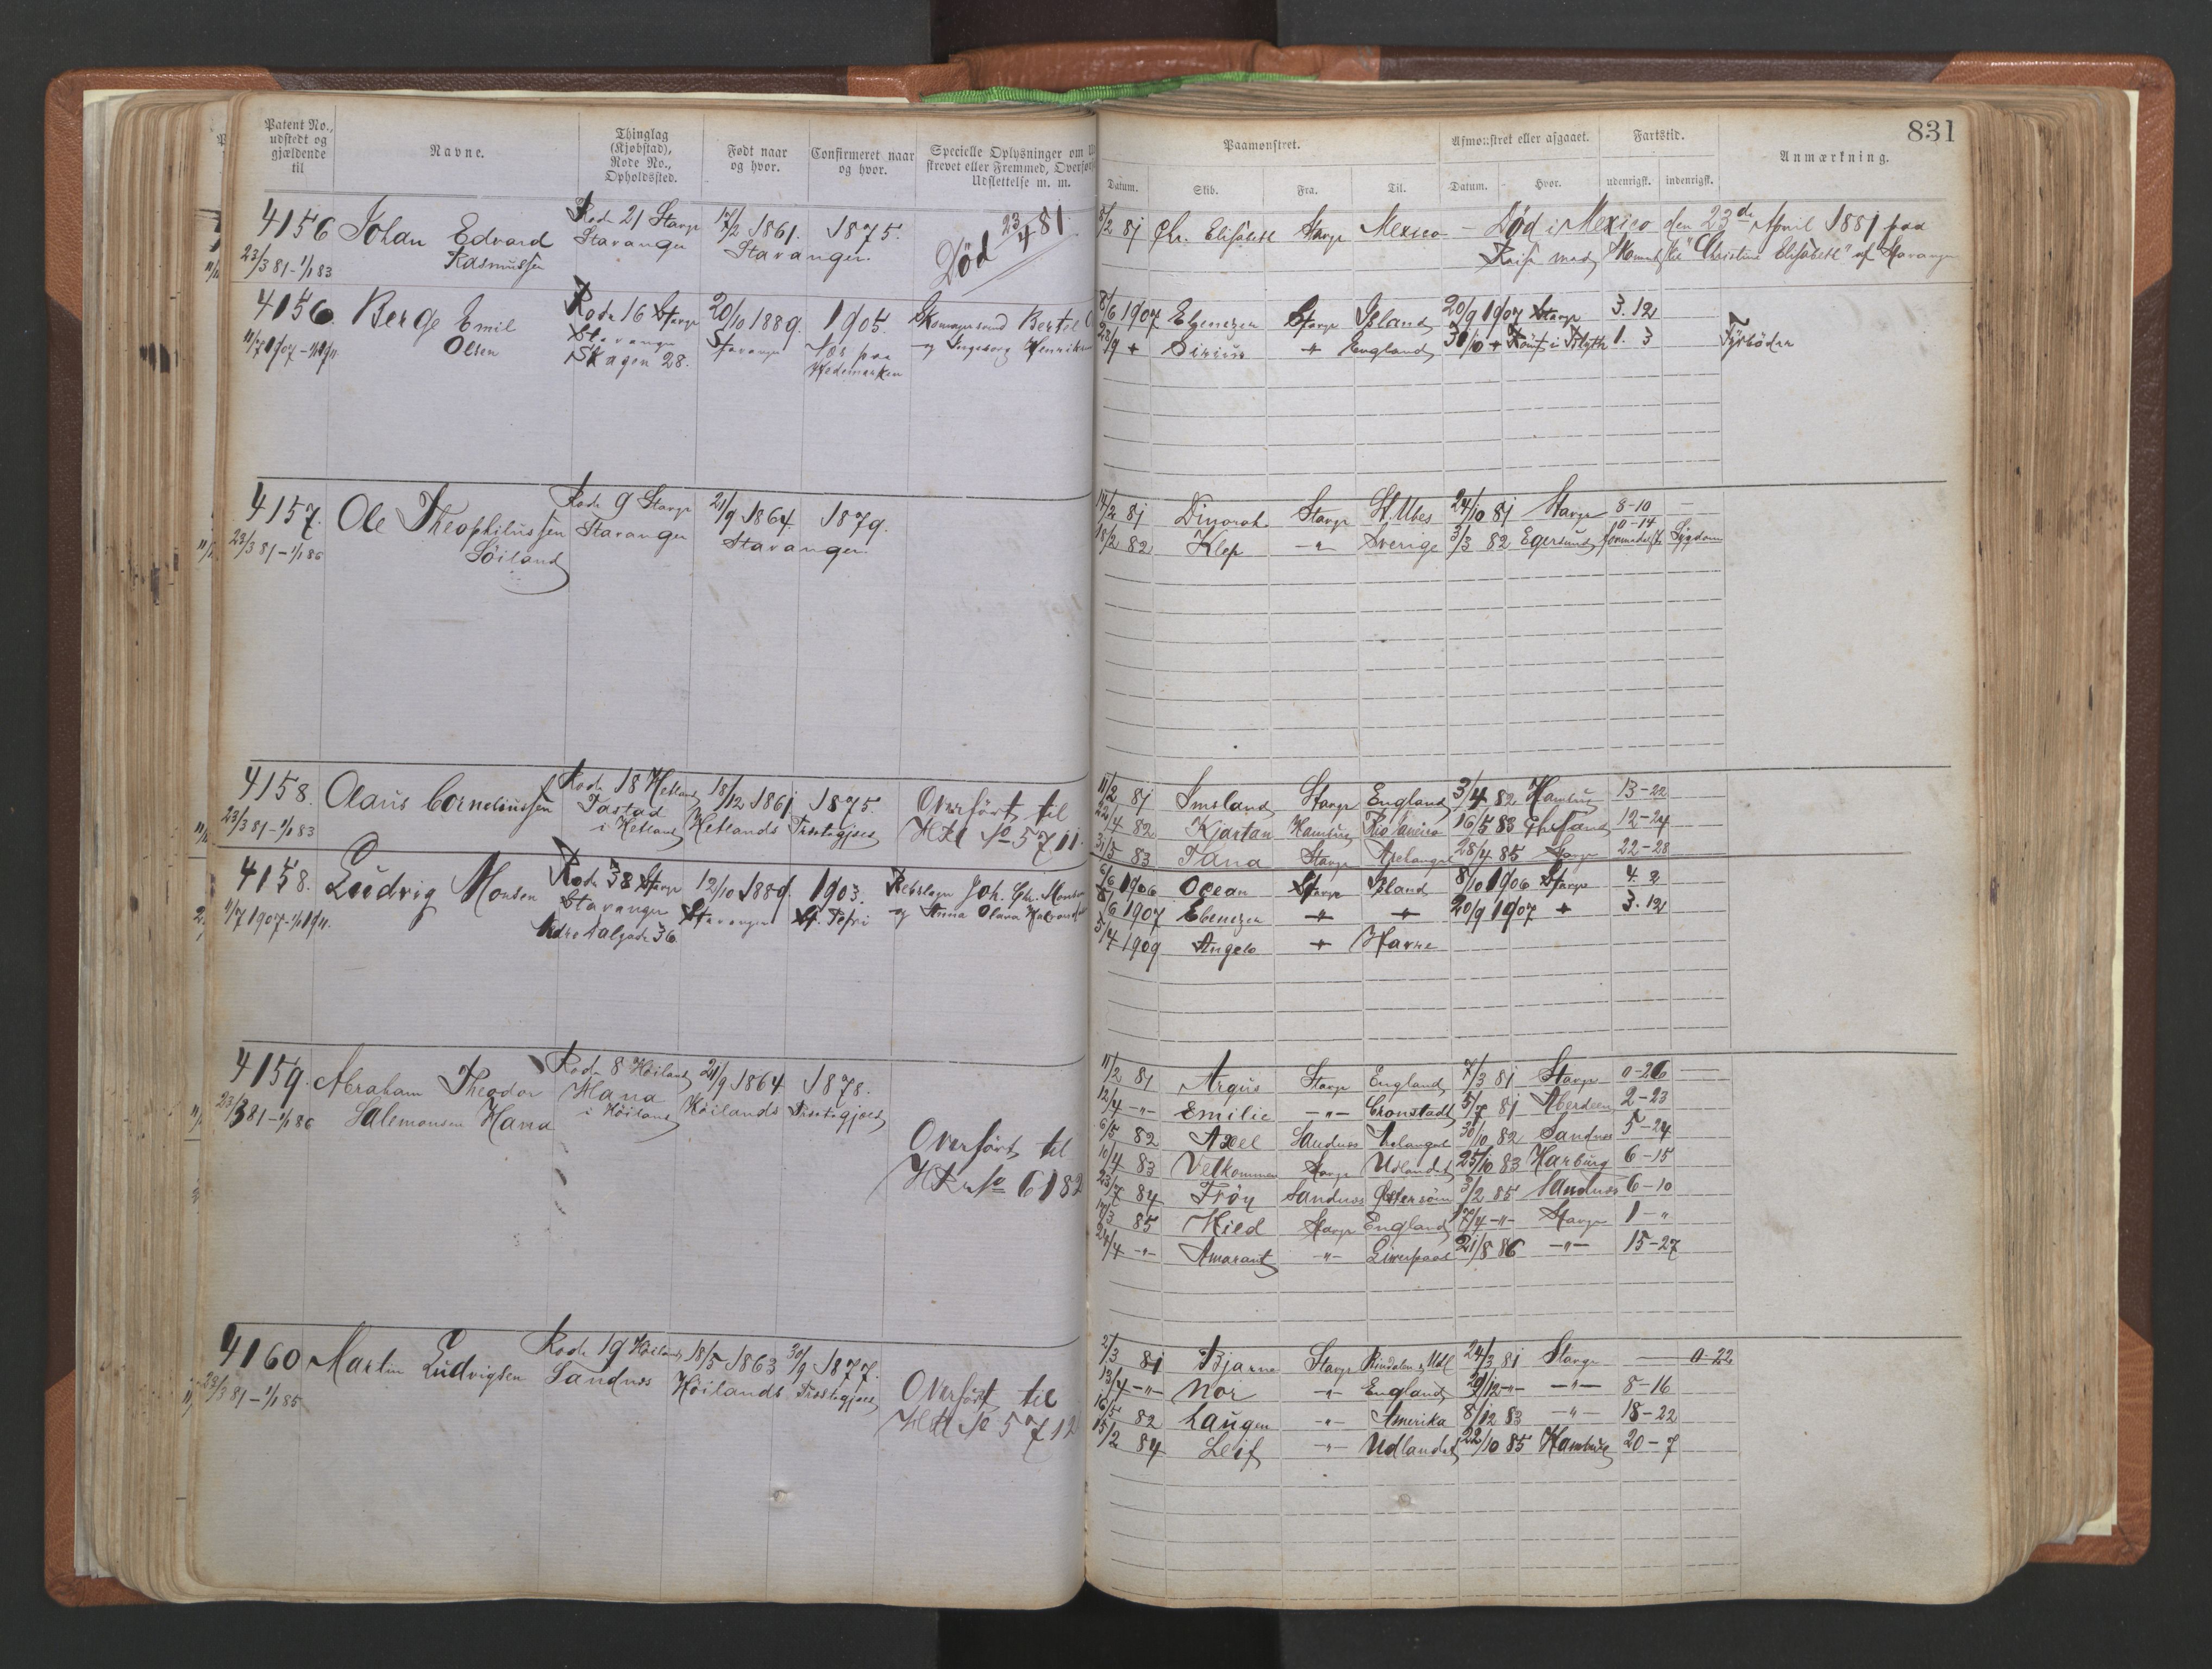 831
Patent No., udstedt og gjældende til
Navne.
Thinglag (Kjøbstad), Rode No., Opholdssted.
Født naar og hvor.
Confirmeret naar og hvor.
Specielle Oplysninger om
skrevet eller Fremmed, Overført
Udslettelse m. m.
Paamønstret.
Afmønstret eller afgaaet.
Fartstid.
Anmærkning.
Datum. Skib. Fra. Til. Datum. Hvor. udenrigsk. indenrigsk.
4156 Johan Edvard Rode 21 Stavgr 17/2 1861. 1875. Død 23/4 81
Rasmussen Stavanger Stavanger.
23/3 81 - 1/1 83
8/2 81 Chr. Elisabeth Stavgr Mexico - Død i Mexico den 23de April 1881 paa
Reise med "Christine Elisabeth" af Stavanger
4156. Berge Emil Rode 16 Stavgr 20/10 1889. 1905. Bertel
11/7 1907 - Olsen Stavanger Stavanger Næs paa og Ingeborg Henriks
Skagen 28. Hedemarken
8/6 1907 Ebenezer Stavgr Island 20/9 1907 Stavgr 3. 12
Sirius " England 30/10 " i Blyth 1. 3 Fyrbøder
4157. Ole Theophilussen Rode 9 Stavgr 21/9 1864 1879.
23/3 81 - 1/1 86 Söiland Stavanger Stavanger.
14/2 81 Dinorah Stavgr St. Ubes 24/10 81 Stavgr 8-10 —
18/2 82 Klep -"- Sverige 3/3 82 Egersund 0-14 Sygdom
4158. Olaus Corneliussen Rode 18 Hetland 18/12 1861 1875. Overført til
23/3 81 - 1/1 83 Tastad i Hetland Hetlands Præstegjæld No 5711.
11/2 81 Imsland Stavgr England 3/4 82 Hamburg 13-22
22/4 82 Kjartan Hamburg Rio Janeiro 16/5 83 Chrsand 12-24
31/5 83 Tana Stavgr Archangel 28/4 85 Stavgr 22-28
4158. Ludvig Monsen Rode 38 Stavgr 12/10 1889. 1903. Rebslager Joh. Chr. Monsen
11/7 1907 - Stavanger Stavanger St. Petri og Anna Olava
Nedre Dalgade 36
6/6 1906 Ocean Stavgr Island 8/10 1906 Stavgr 4. 2
8/6 1907 Ebenezer " " 20/9 1907 " 3. 12
5/4 1909 Angelo " Havre
4159. Abraham Theodor Rode 8 Höiland 21/9 1864 1878.
23/3 81 - 1/1 86 Salemonsen Hana Hana i Höiland Höilands Præstegjæld
Overført til
No 6182
11/2 81 Argus Stavgr England 7/3 81 Stavgr 0-26 —
12/4 -"- Emilie -"- Cronstadt 5/7 81 Aberdeen 2-23
6/5 82 Axel Sandnes Archangel 30/10 82 Sandnes 5-24
10/4 83 Velkommen Stavgr Udlandet 25/10 83 Harburg 6-15
23/7 84 Fröy Sandnes Østersøen 3/2 85 Sandnes 6-10
85 Hild Stavgr England 17/4 -"- Stavgr 1-"
24/4 -"- Amarant -"- Liverpool 21/8 86 -"- 15-27
4160 Martin Ludvigsen Rode 19 Höiland 18/5 1863 30/9 1877.
23/3 81 - 1/1 85 Sandnes Höilands Præstegjæld
Overført til
No 5712
2/3 81 Bjarne Stavgr 24/3 81 Stavgr — 0-22
13/4 -"- Nor -"- England 29/12 -"- -"- 8-16
16/5 82 Laugen -"- Amerika 8/12 83 -"- 18-22
15/2 84 Leif -"- Udlandet 22/10 85 Hamburg 20-7